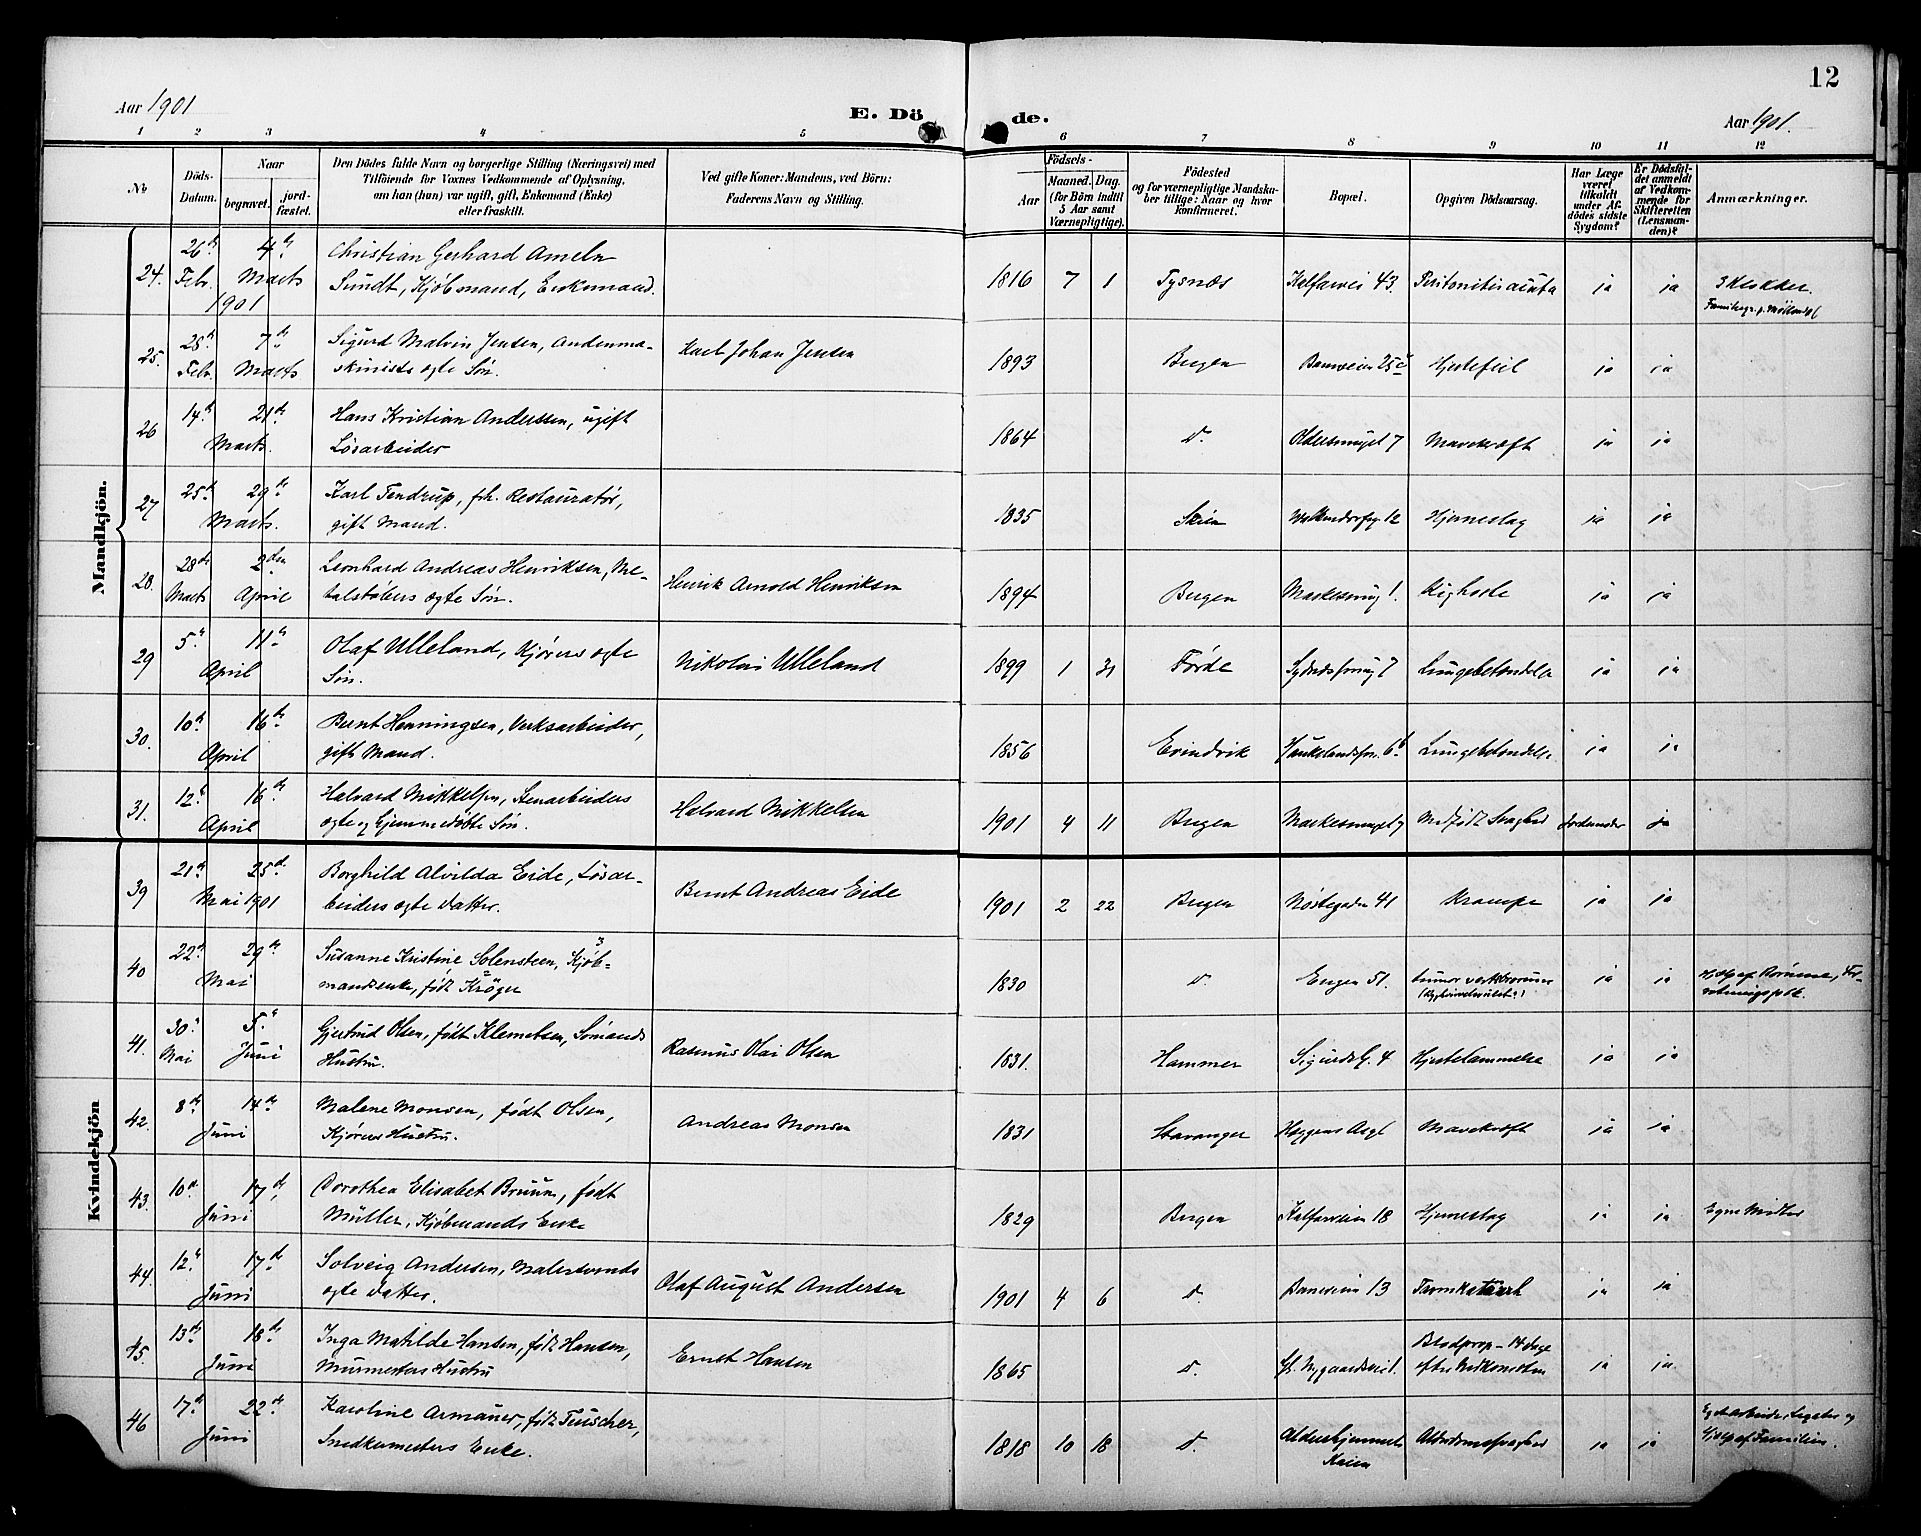 12
Aar 1901
E. Dö de.
Aar 1901.
1 2 3 4 5 6 7 8 9 10 11 12
No
Döds-Datum.
Naar
begravet.
jord-fæstet.
Den Dödes fulde Navn og borgerlige Stilling (Næringsvei) med
Tilföiende för Voxnes Vedkommende af Oplysning,
om han (hun) var ugift, gift, Enkemand (Enke)
eller fraskilt.
Ved gifte Koner: Mandens, ved Börn:
Faderens Navn og Stilling.
Födsels-
Aar
Maaned. Dag.
(for Börn indtil
5 Aar samt
Værnepligtige).
Födested
og for værnepligtige Mandska-
ber tillige: Naar og hvor
konfirmeret.
Bopæl.
Opgiven Dödsaarsag.
Har Læge
været
tilkaldt
under Af-
dödes sidste
Sygdom?
Er Dödsfal-
det anmeldt
af Vedkom-
mende for
Skifteretten
(Lensman-
den)?
Anmærkninger.
Mandkjön.
24. 26de Febr. 4de Marts 1901 Christian Gerhard Ameln
Sundt, Kjøbmand, Enkemand. 1816 7 1 Tysnæs Kalfarvei 43. Peritonitis acuta ja ja 3 Klokker.
25. 28de Febr. 7de Marts Sigurd Malvin Jensen, Andenma-
skinists ægte Søn. Karl Johan Jensen 1893 Bergen Baneveien 25c Hjertefeil ja ja
26 14de 21de Marts. Hans Kristian Anderssen, ugift
Løsarbeider 1864 d. Oldersmuget 7 Mavekræft ja ja
27 25de 29de Marts. Karl Tendrup, fh. Restauratør,
gift Mand. 1835 Skien Walkendorfsg. 12 Hjerneslag ja ja
28. 28de Marts 2den April Leonhard Andreas Henriksen, Me-
talstøbers ægte Søn. Henrik Arnold Henriksen 1894 Bergen Maskesmug 1. Kighoste ja ja
29 5te 11te April Olaf Ulleland, Kjørers ægte
Søn. Nikolai Ulleland 1899 1 31 Førde Sydnæssmug 7 Lungebetændelse ja ja
30. 10de 16de April Bernt Henningsen, Verksarbeider,
gift Mand. 1856 Evindvik Haukelandsv. 6b Lungebetændelse. ja ja
31. 12te 16de April Halvard Mikkelsen, Stenarbeiders
ægte og hjemmedøbte Søn. Halvard Mikkelsen 1901 4 11 Bergen Maskesmuget 7 Medfødt Svaghed Jordemoder ja
Kvindekjön
39 21de 25de Mai 1901 Borghild Alvilda Eide, Løsar-
beiders ægte Datter. Bernt Andreas Eide 1901 2 22 Bergen Nøstegaden 41 Krampe ja ja
40 22de 29de Mai Susanne Kristine Solensteen, Kjøb-
mandsenke, født Krøger 1830 d. Engen 51. ja ja
41. 30te Mai 5te Juni Gjertrud Olsen, født Klemetsen, Sømands
Hustru. Rasmus Olai Olsen 1831. Hammer Sigurdsg. 4 Hjertelammelse ja ja
42. 8de 14de Juni Malene Monsen, født Olsen,
Kjørers Hustru. Andreas Monsen 1831 Stavanger Haggens Asyl Mavekræft ja ja
43. 10de 17de Juni Dorothea Elisabet Bruun, født
Müller, Kjøbmands Enke 1829 Bergen Kalfarveien 18 Hjerneslag ja ja Egne Midler
44. 12te 17de Juni Solveig Andersen, Malersvends
ægte Datter. Olaf August Andersen 1901 4 6 d. Baneveien 13 Tarmkatarrh ja ja
45. 13de 18de Juni Inga Matilde Hansen, født Hansen,
Murmesters Hustru Ernst Hansen 1865 d. Gl. Nygaardsvei 1. Blodprop - 14 dage
efter Nedkomsten ja ja
46 17de 22de Juni Karoline Armauer, født Teuscher,
Snedkermesters Enke. 1818 10 18 d. Alderhjemmet
Kaien Alderdomssvaghed ja ja Eget Arbeide, Legater og
Hjælp af Familien.